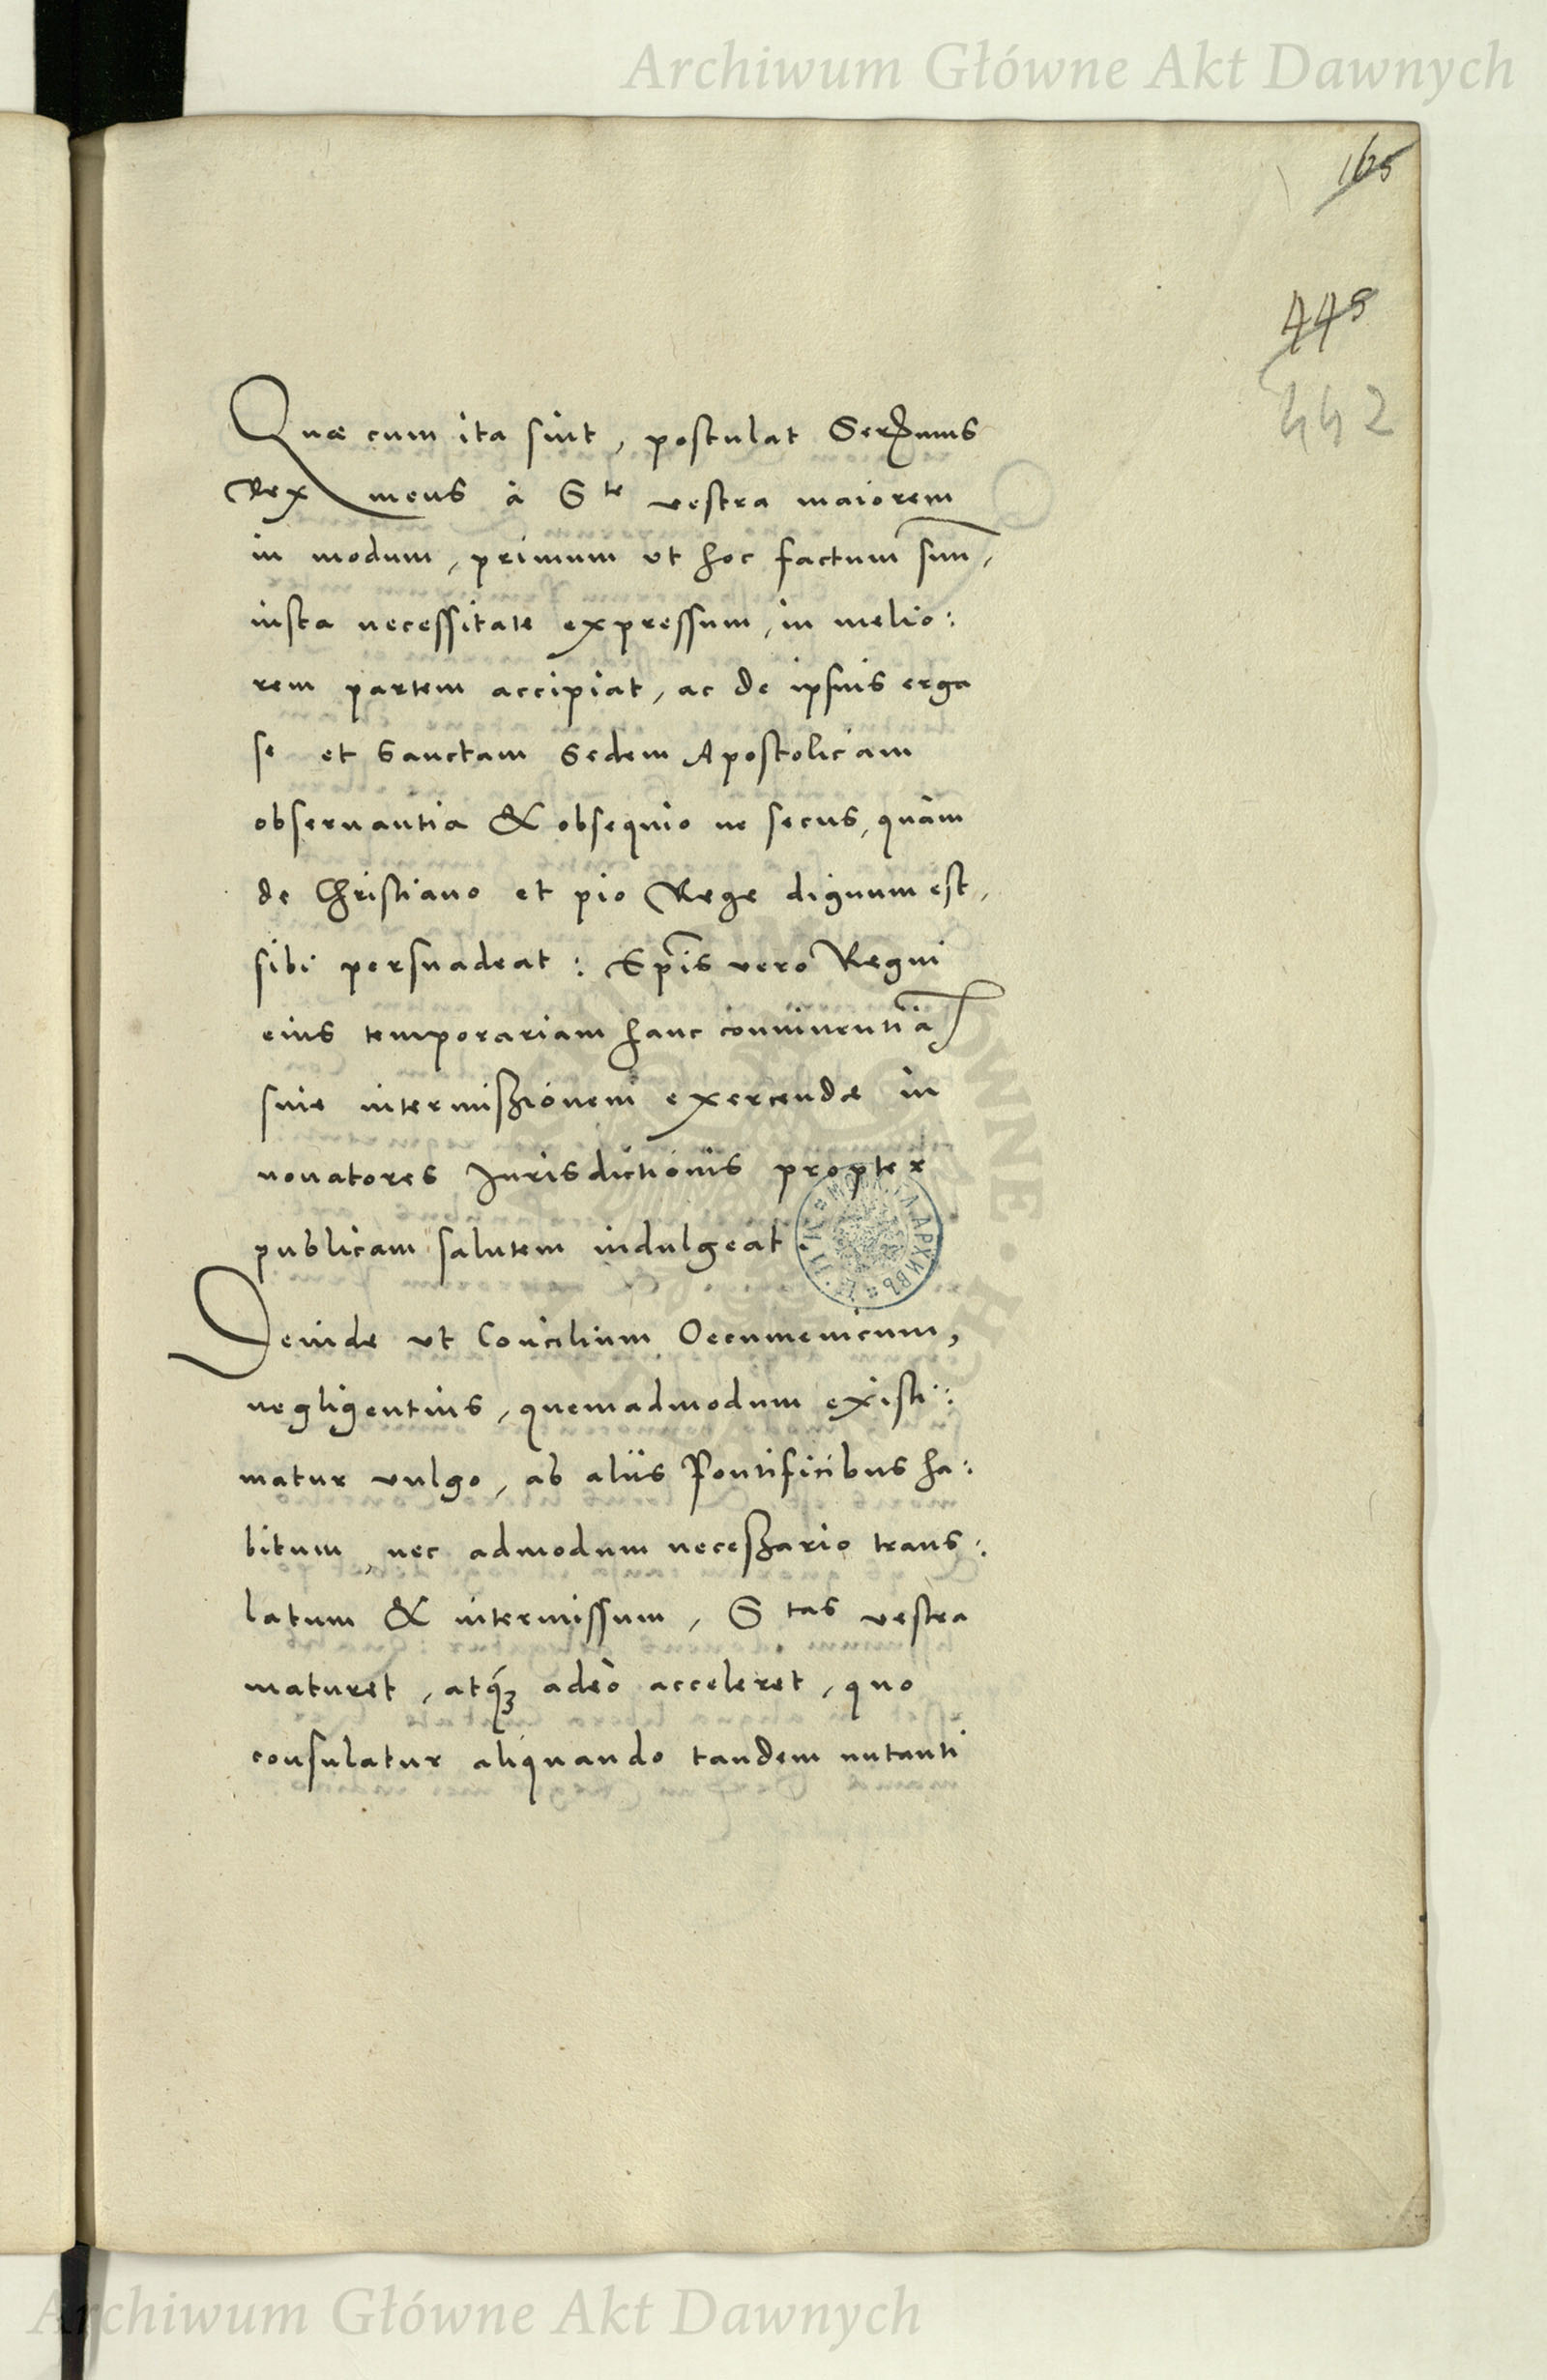 Archiwum Główne Akt Dawnych
165
445
442
Quæ cum ita sint, postulat Serꝰnus
Rex meus à S te vestra maiorem
in modum, primum ut hoc factum suũ,
iusta necessitate expressum, in melio:
rem partem accipiat, ac de ipsius erga
se et Sanctam Sedem Apostolicam
obseruantia & obsequio ne secus, quàm
de Christiano et pio Rege dignum est,
sibi persuadeat: Ep̃is vero Regni
eius temporariam hanc conniuentiã
siue intermißionem exercendæ in
nouatores Jurisdictionis propter
publicam salutem indulgeat.
Deinde ut Concilium Oecumenicum,
negligentius, quemadmodum existi:
matur vulgo, ab aliis Pontificibus ha:
bitum, nec admodum neceßario trans:
latum & intermissum, S tas vestra
maturet, atq́ꝫ adeò acceleret, quo
consulatur aliquando tandem nutanti
Archiwum Główne Akt Dawnych